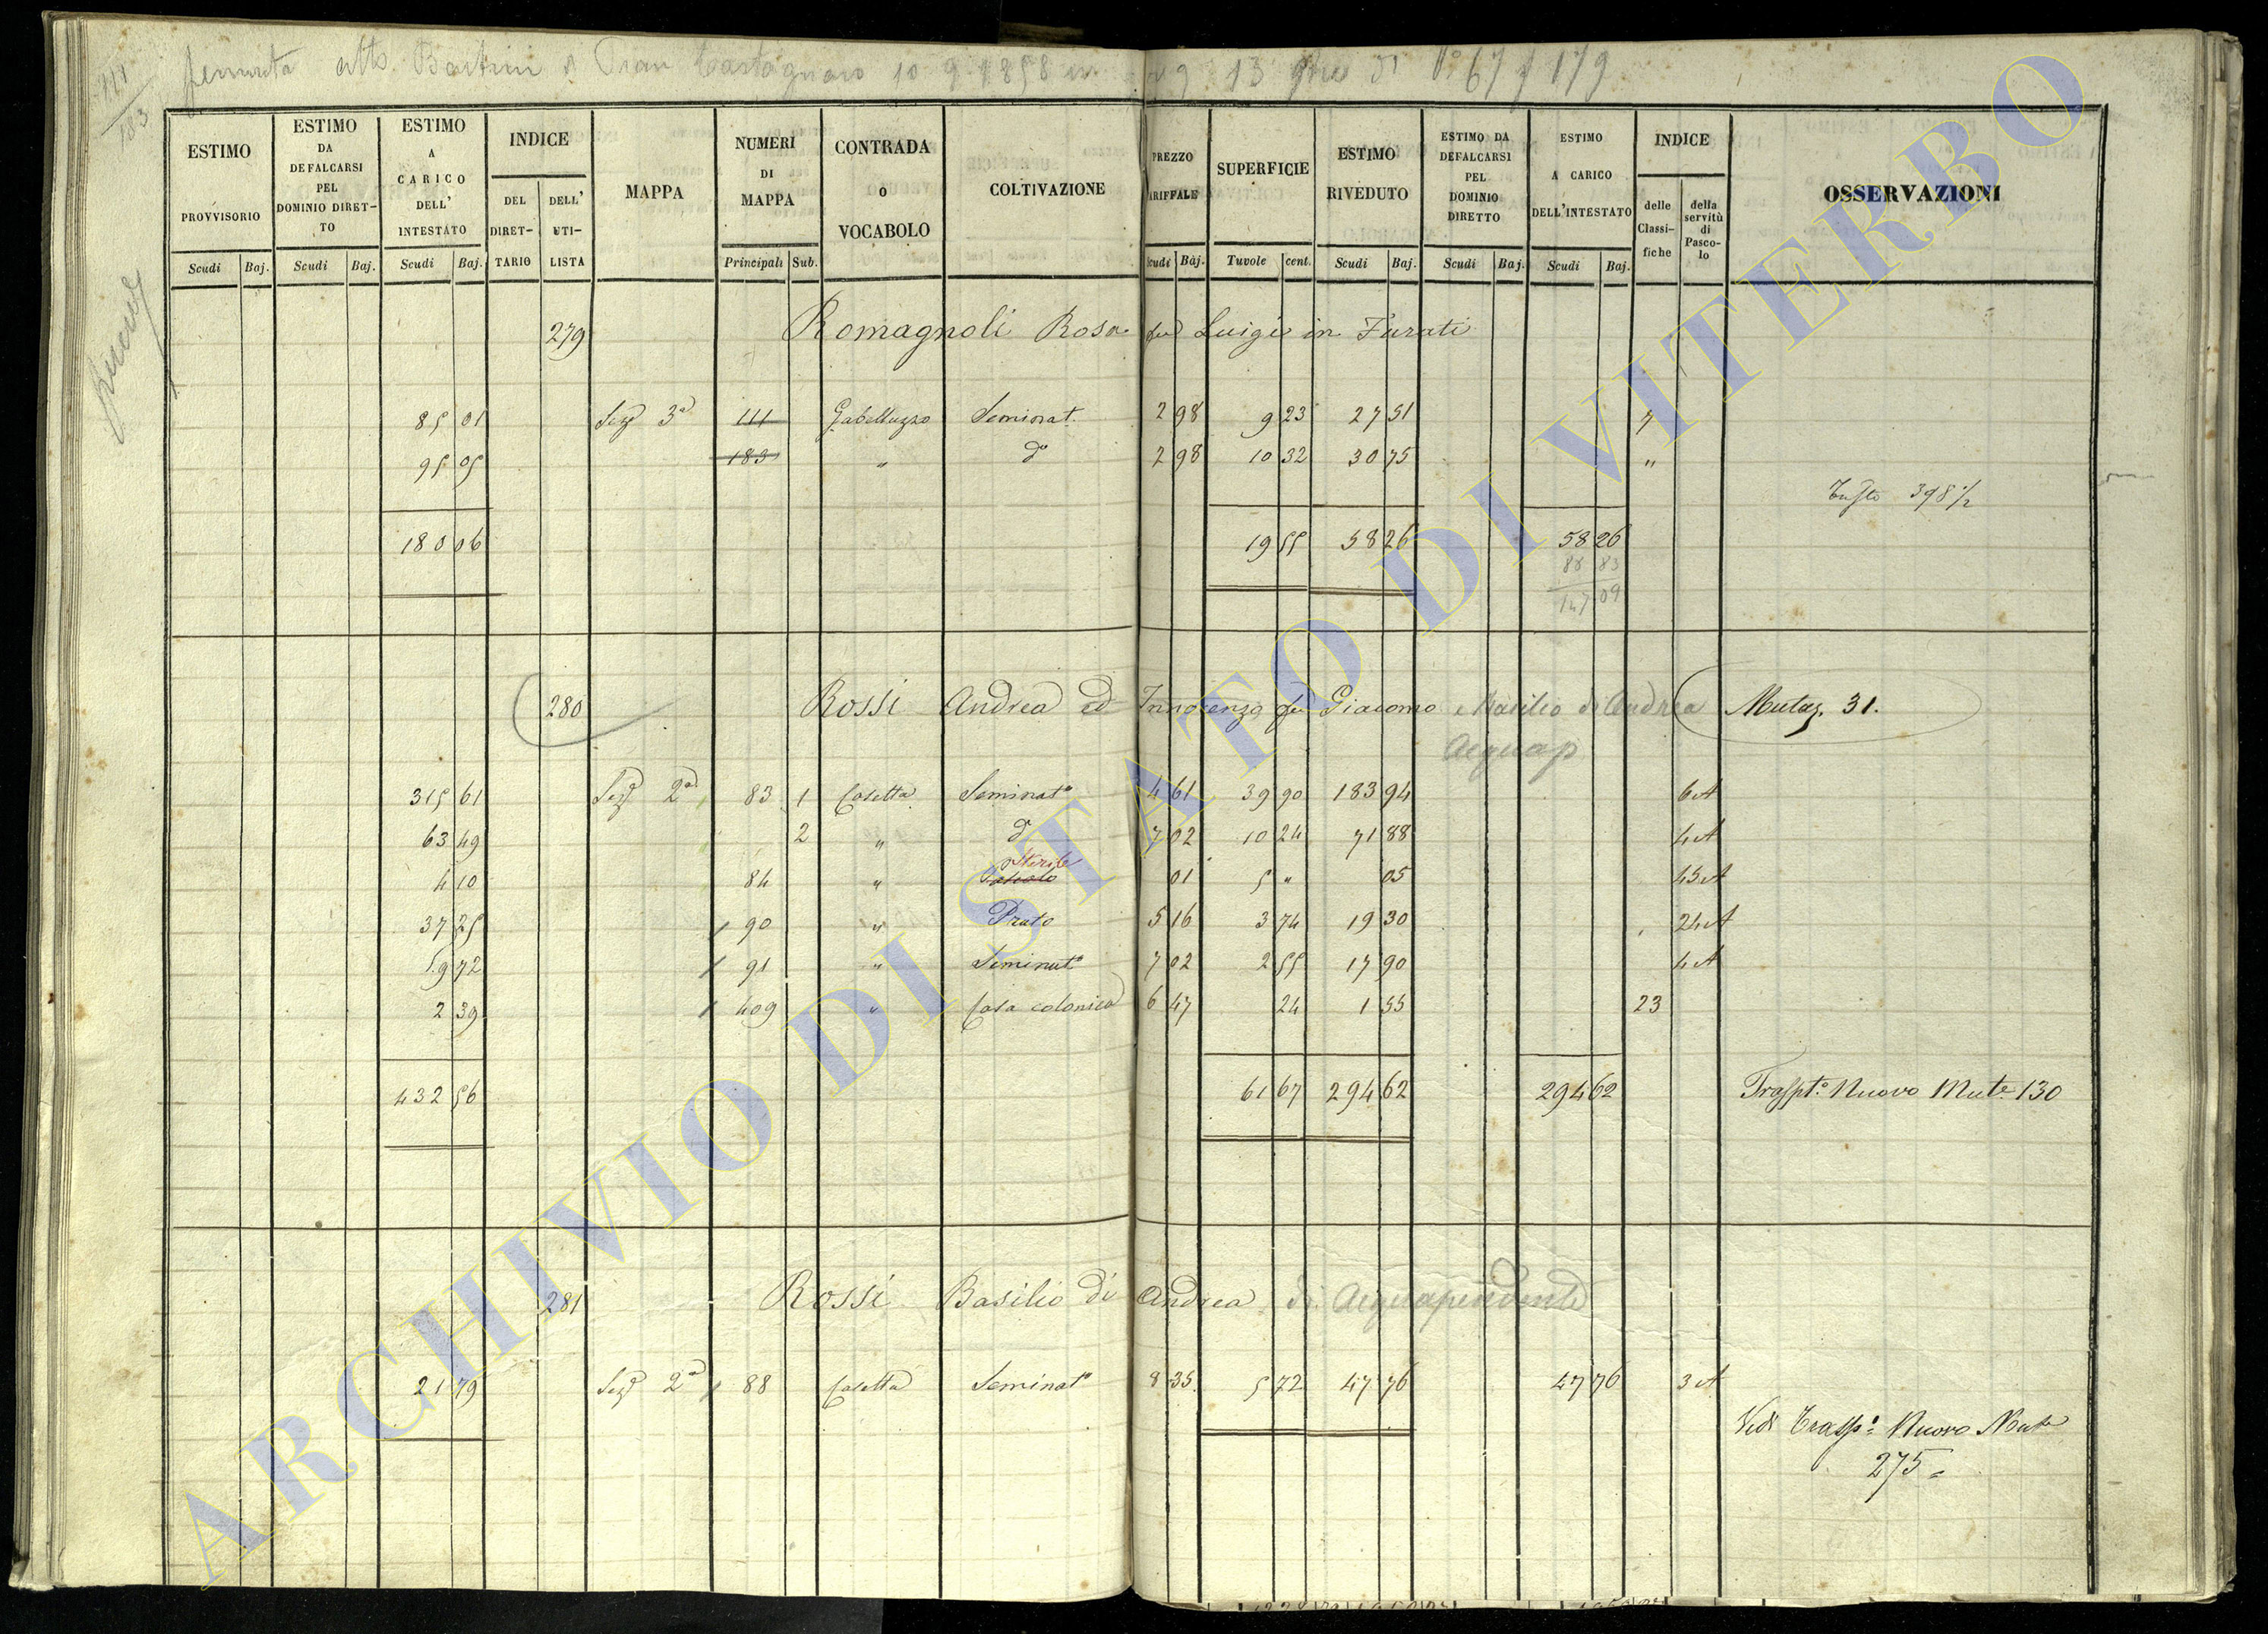 10 9 1858
ESTIMO PROVVISORIO
ESTIMO DA DEFALCARSI PEL DOMINIO DIRET-TO
ESTIMO A CARICO DELL' INTESTATO
INDICE
DEL DIRET-TARIO
DELL' UTI-LISTA
MAPPA
NUMERI DI MAPPA
CONTRADA O VOCABOLO
COLTIVAZIONE
PREZZO TARIFFALE
SUPERFICIE
ESTIMO RIVEDUTO
ESTIMO DA DEFALCARSI PEL DOMINIO DIRETTO
ESTIMO A CARICO DELL'INTESTATO
INDICE
delle Classi-fiche
della servitù di Pasco-lo
OSSERVAZIONI
Scudi Baj. Scudi Baj. Scudi Baj. Principali Sub. Scudi Baj. Tavole cent. Scudi Baj. Scudi Baj. Scudi Baj.
279 Romagnoli Rosa fu Luigi in Turati
85 01 Sez 3a 111 Gabelluzzo Seminat. 2 98 9 23 27 51 7
95 05 183 " do 2 98 10 32 30 75 "
398 1/2
180 06 19 55 58 26 58 26
88 83
147 09
280 Rossi Andrea ed Innocenzo fu Giacomo e Basilio di Andrea Mutaz. 31.
Acquap
315 61 Sez 2a 83 1 Casetta Seminato 4 61 39 90 183 94 6 A
63 49 2 " do 7 02 10 24 71 88 4 A
Sterile
4 10 84 " Pascolo 01 5 " 05 45 A
37 25 90 " Prato 5 16 3 74 19 30 24 A
9 72 91 " Seminato 7 02 2 55 17 90 4 A
2 39 409 " Casa colonica 6 47 24 1 55 23
432 56 61 67 294 62 294 62 Traspto Nuovo Mute 130
281 Rossi Basilio di Andrea di Acquapendente
21 79 Sez 2a 88 Casetta Seminato 8 35 5 72 47 76 47 76 3 A
Vedi Traspo Nuovo Mute
275
ARCHIVIO DI STATO DI VITERBO